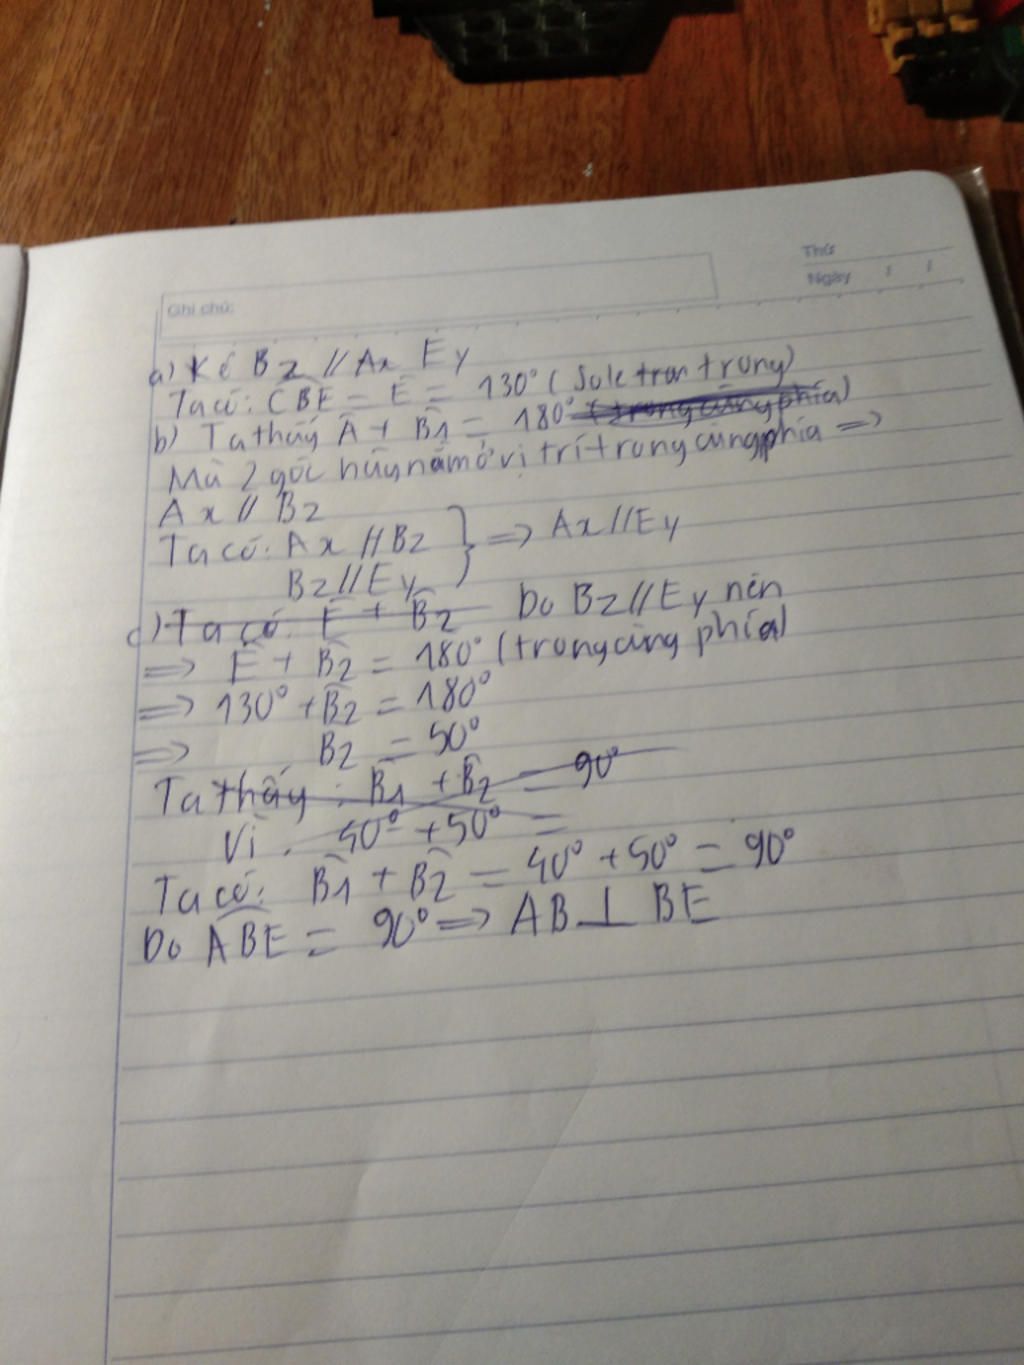 Thứ
Ngày / /
Ghi chú:
a) Kẻ Bz // Ax Ey
Ta có: CBE = E = 130° (sole tron trong)
b) Ta thấy A + B1 = 180° (trong cùng phía)
Mà 2 góc này nằm ở vị trí trong cùng phía =>
Ax // Bz
Ta có: Ax // Bz } => Ax // Ey
Bz // Ey
c) Ta có: E + B2 Do Bz // Ey nên
=> E + B2 = 180° (trong cùng phía)
=> 130° + B2 = 180°
=> B2 = 50°
Ta thấy: B1 + B2 = 90°
Vì. 40° + 50° =
Ta có: B1 + B2 = 40° + 50° = 90°
Do ABE = 90° => AB ⊥ BE